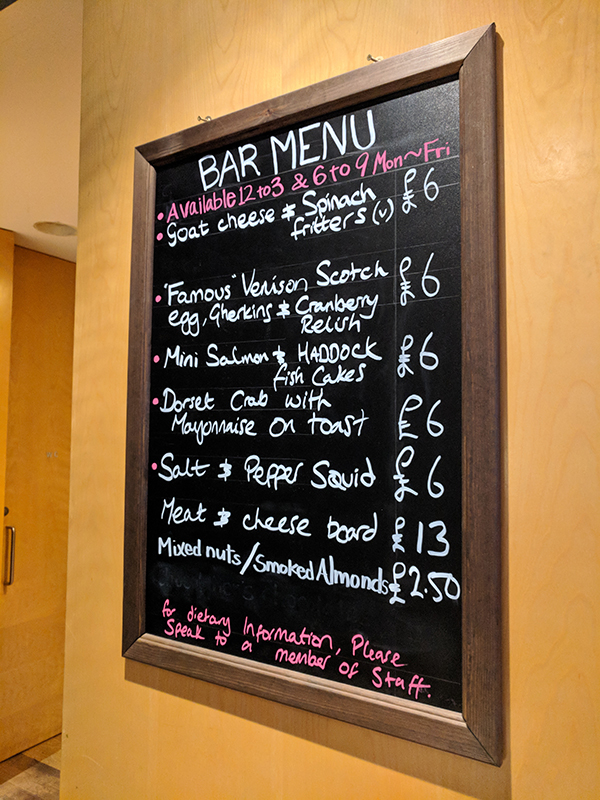 BAR MENU
• Available 12 to 3 & 6 to 9 Mon~Fri
• Goat cheese & Spinach £6
fritters (v)
• "Famous" Venison Scotch £6
egg, Gherkins & Cranberry
Relish
• Mini Salmon & HADDOCK £6
fish Cakes
• Dorset Crab with £6
Mayonnaise on toast
• Salt & Pepper Squid £6
Meat & cheese board £13
Mixed nuts/Smoked Almonds £2.50
for dietary Information, Please
Speak to a member of Staff.